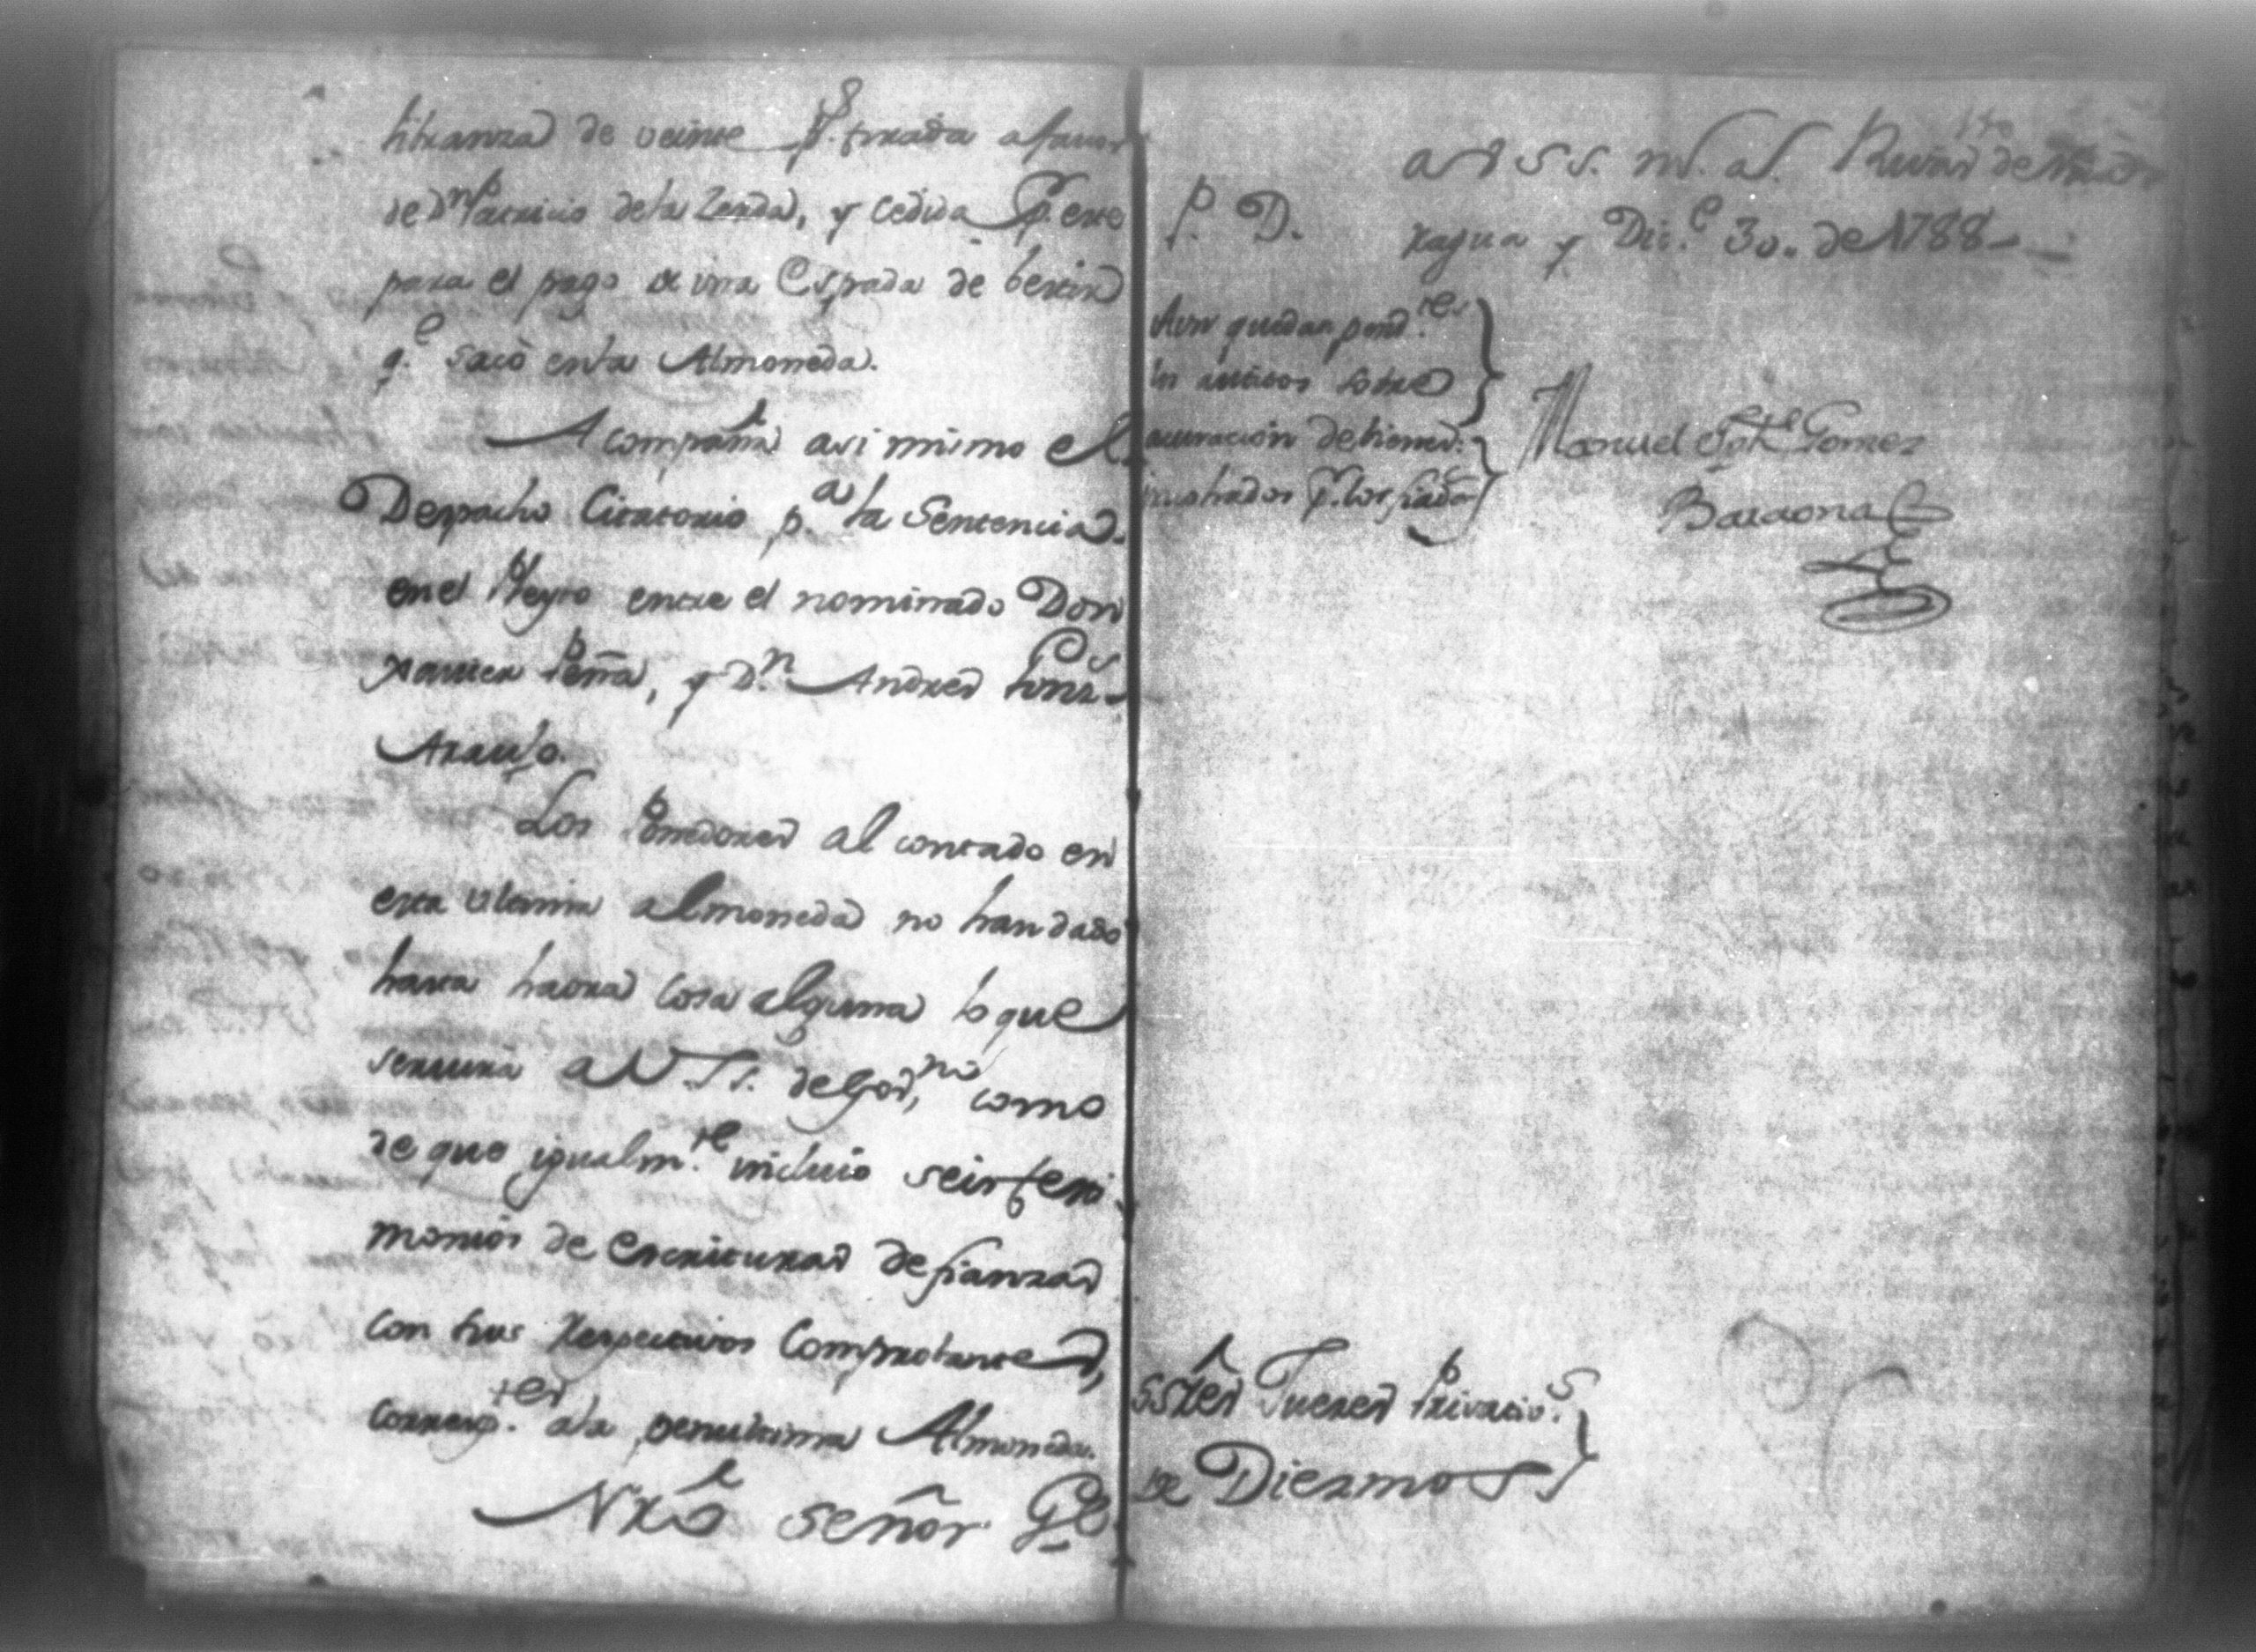 libranza de veinte p.s tirada a favor
de Dn Patricio de la Zerda, y cedida p.r este
para el pago de una Espada de
q.e sacó en la Almoneda.
Acompaña asi mismo el
Despacho Citatorio p.a la Sentencia
en el Pleyto entre el nominado Don
Xavier Peña, y D.n Andres
Araujo.
Los Ponedores al contado en
esta ultima almoneda no han dado
hasta haora cosa alguna lo que
servirá a V.SS. de Govno, como
de que igualm.te incluio seis testi
monios de escrituras de fianzas
con sus respectivos Comprobantes,
corresp.tes a la penultima Almoneda.
Nrô Señor G.e
a V SS. m.s a.s
ragua y Dic.e 30. de 1788
P. D.
Aun quedan pend.tes
los autitos sobre
de bienes
p.r los fiad
Manuel Jph Gomez
Baraona
SSres Jueces Privativos
de Diezmos